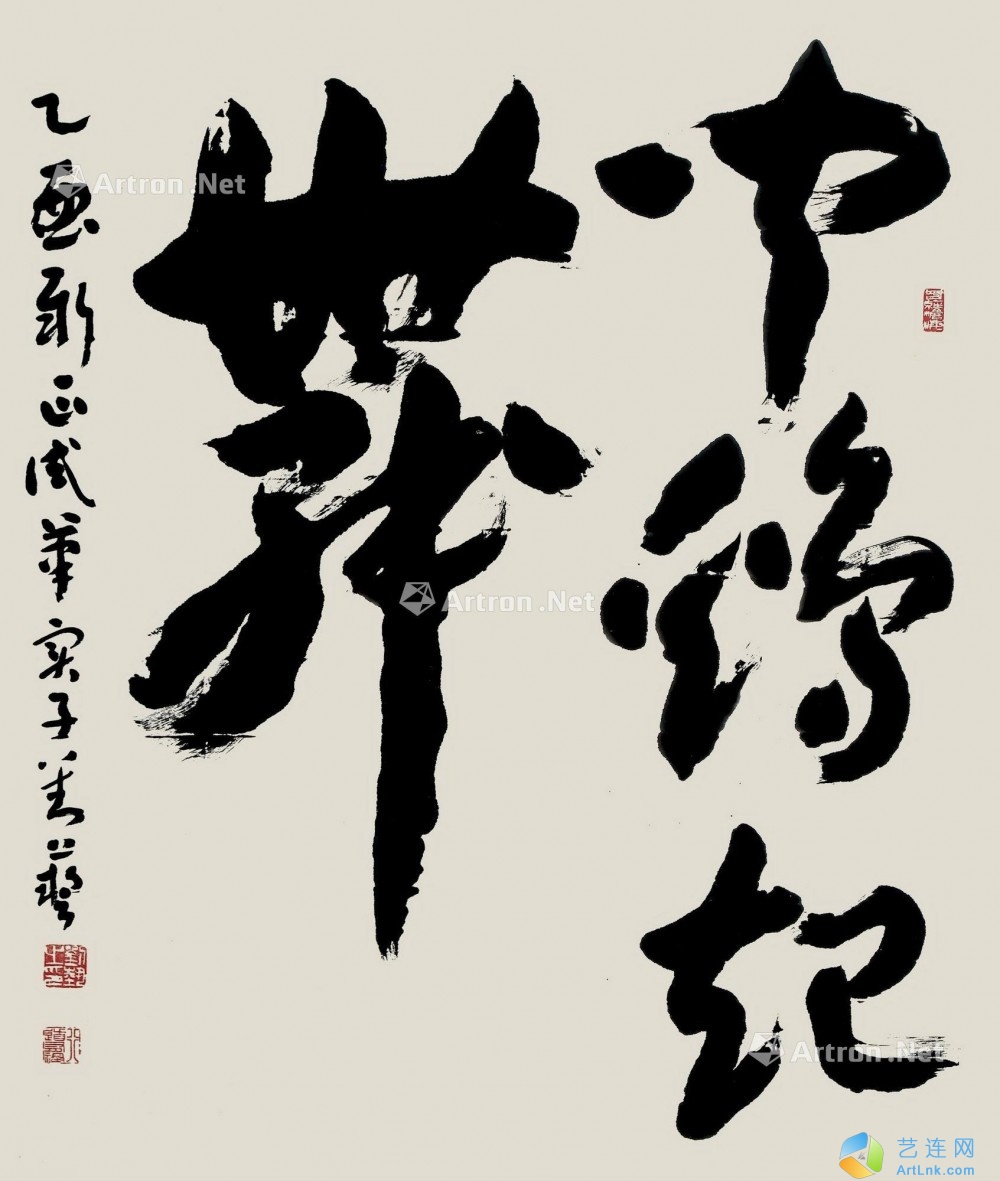 聞鷄起
舞
乙酉新正試筆 藝
Artron.Net
Artron.Net
Artron.Net
艺连网
ArtLnk.com